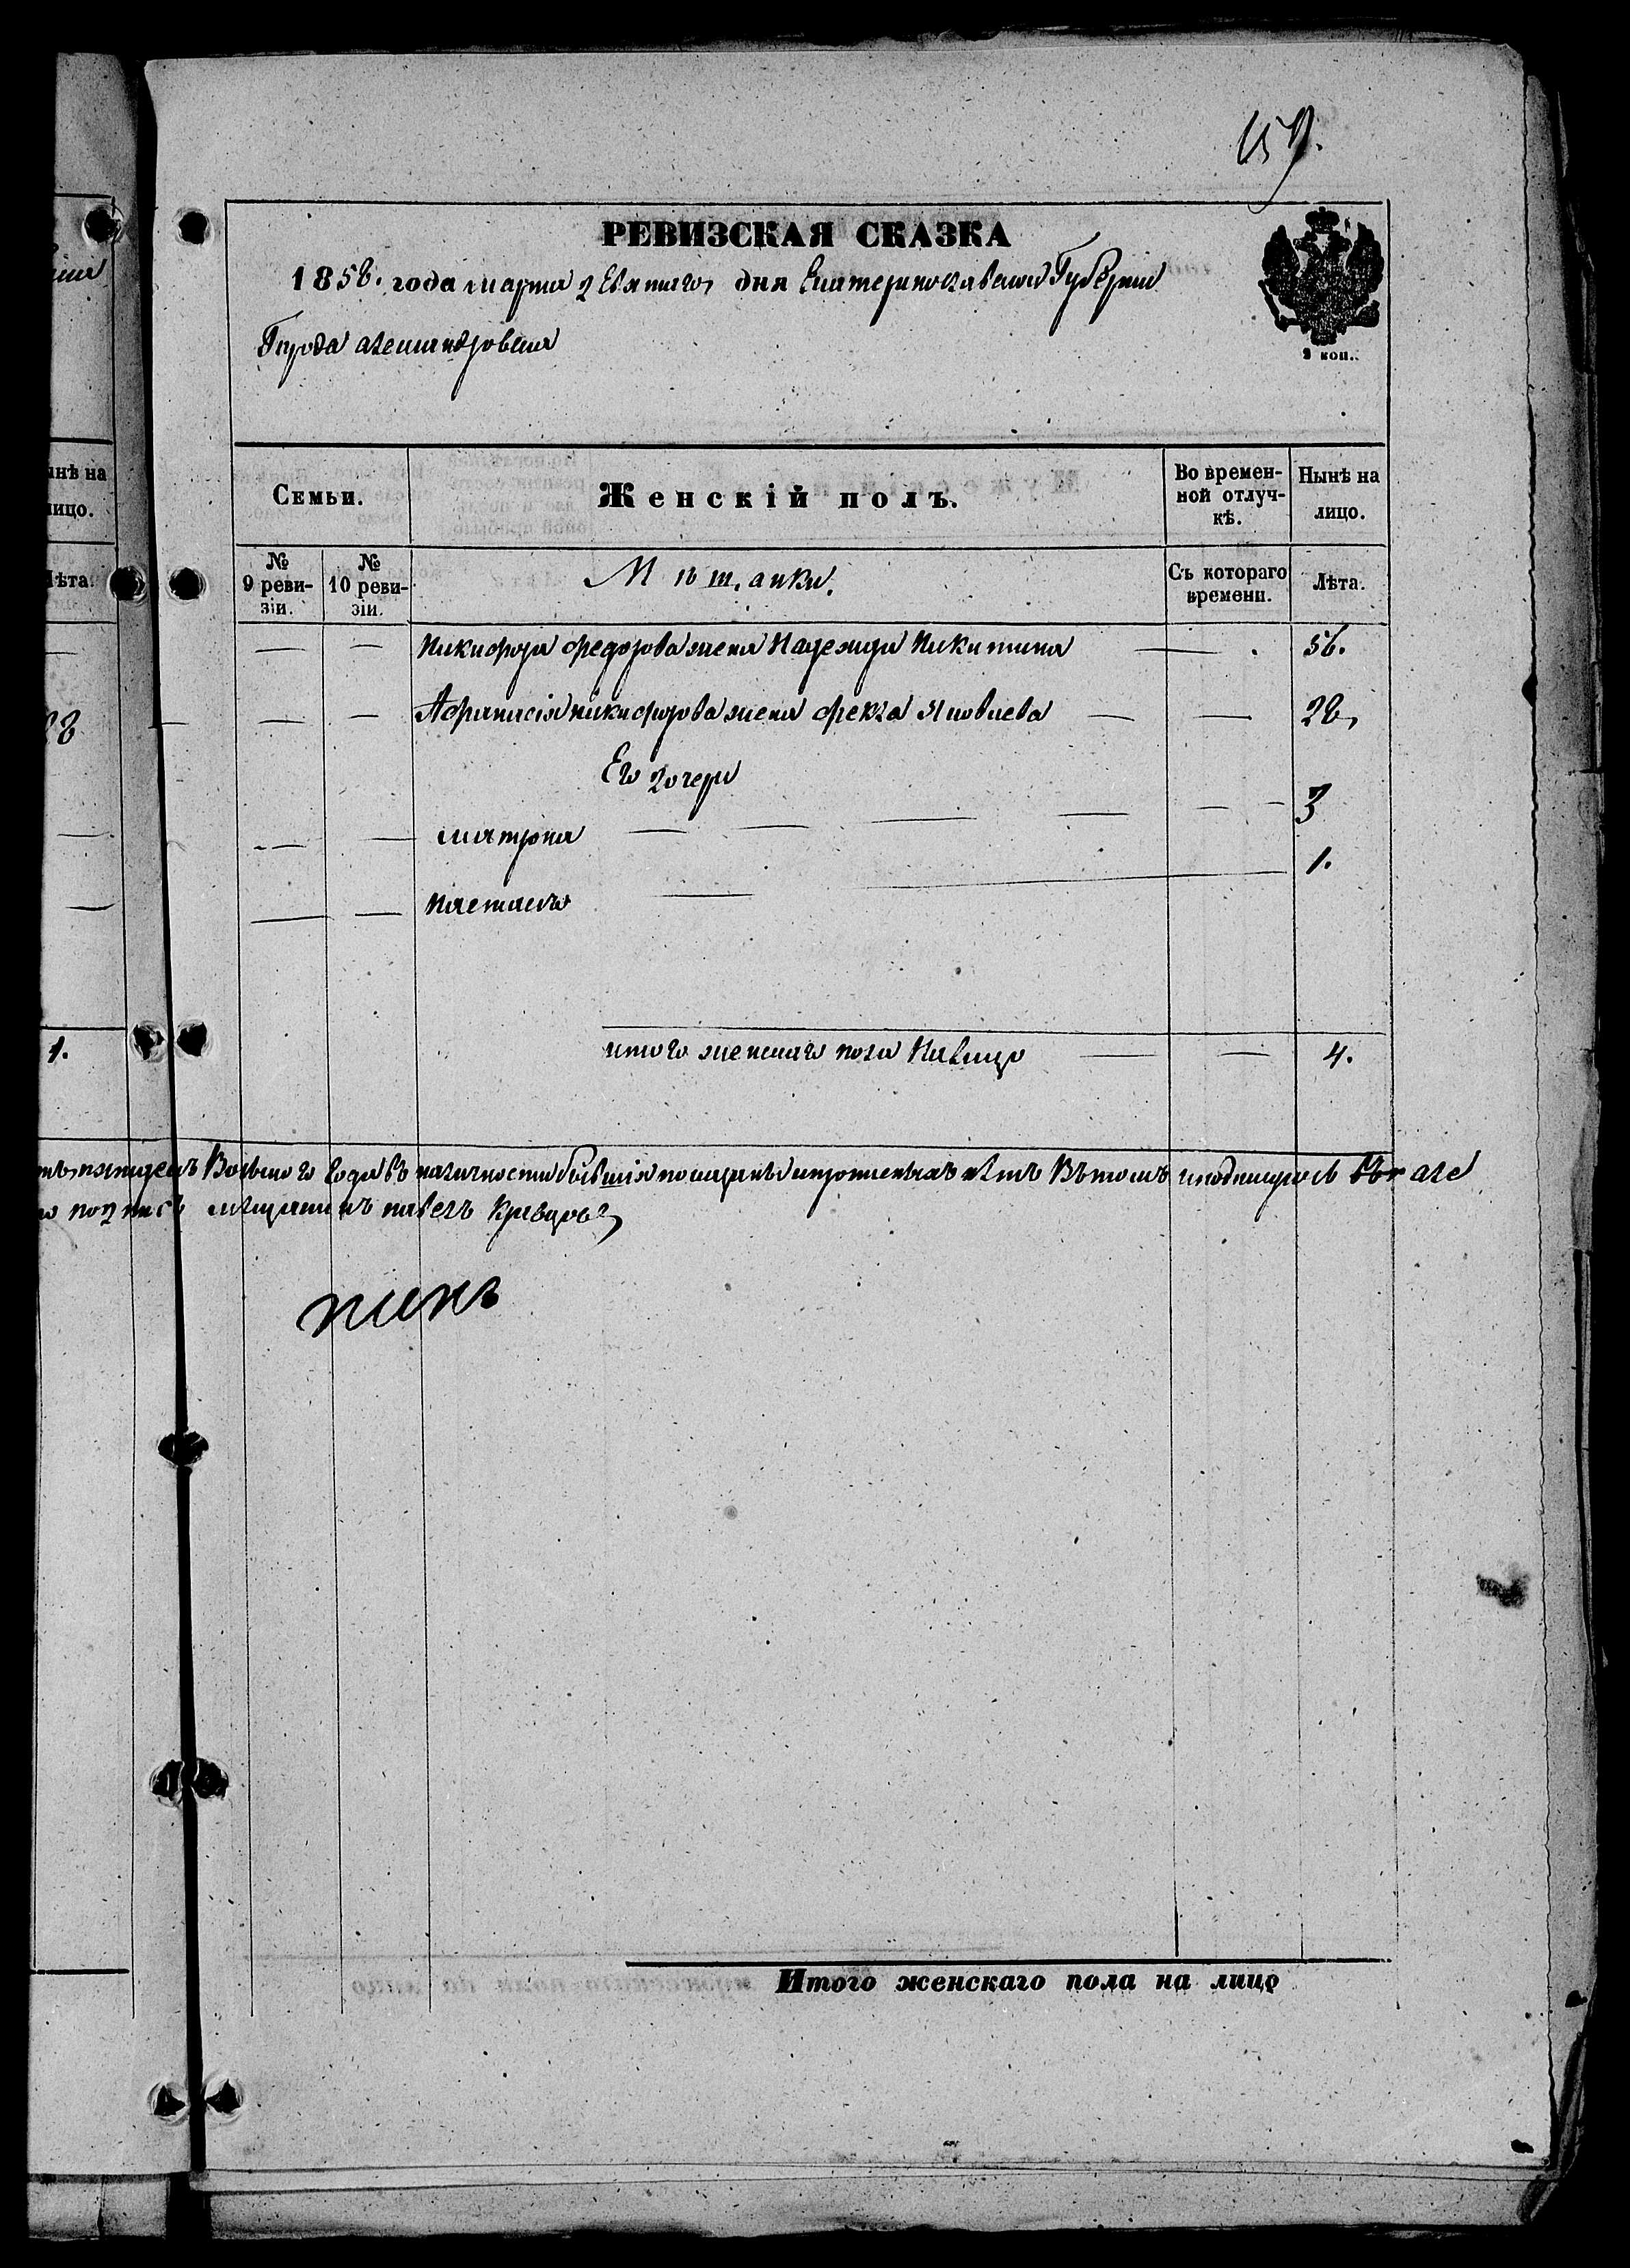 159.
РЕВИЗСКАЯ СКАЗКА
1858. года марта девятаго дня Екатеринославской Губернии
Города александровска
2 коп.
Семьи.
Женскій полъ.
Во времен-
ной отлуч-
кѣ.
Нынѣ на
лицо.
№
9 реви-
зіи.
№
10 реви-
зіи.
Мѣщанки.
Съ котораго
времени.
Лѣта.
Никифора федорова жена Надежда Никитина 56.
Афанасія никифорова жена фекла Яковлева 28,
Его дочери
матрона 3
настасья 1.
итого женскаго пола Налицо 4.
Восьмого года въ наличности бывшія лѣтъ Вътомъ
подпись мѣщанинъ павелъ
Итого женскаго пола на лицо
нѣ на
лицо.
Лѣта.
28
1.